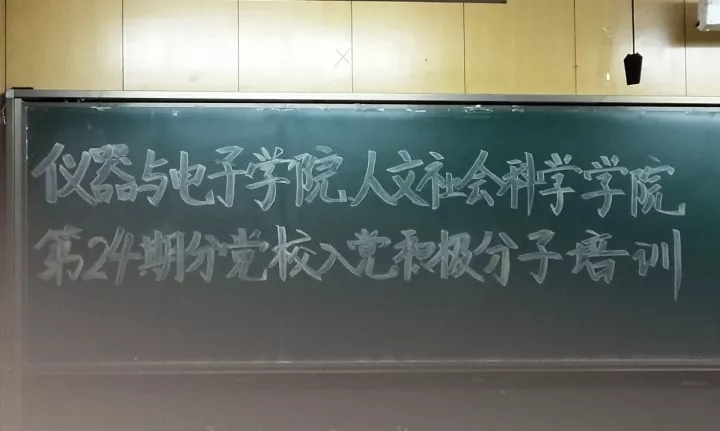 仪器与电子学院人文社会科学学院
第24期分党校入党积极分子培训